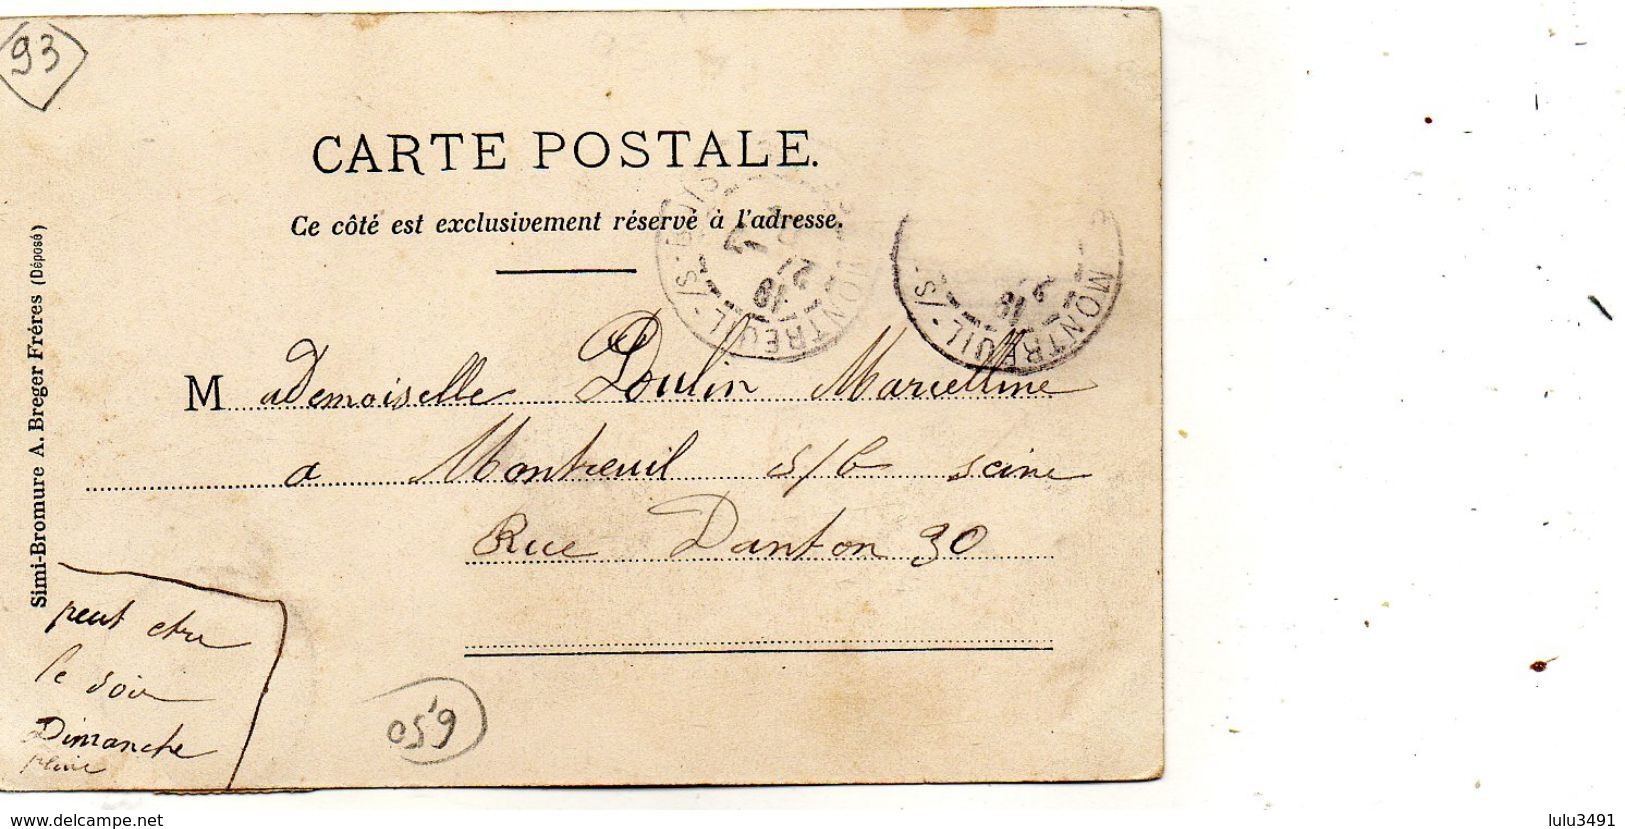 93
CARTE POSTALE.
Ce côté est exclusivement réservé à l'adresse.
MONTREUIL-S/-BOIS
21
19
MONTREUIL-S/-
Mademoiselle Poulin Marcelline
a Montreuil s/b seine
Rue Danton 30
Simi-Bromure A. Breger Frères (Déposé)
peut etre
le soir
Dimanche
6,50
www.delcampe.net
lulu3491